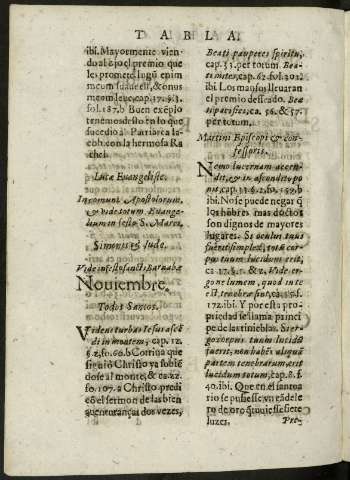 TABLA
ibi. Mayormente vien-
do al ojo el premio que
les promete. Iugũ enim
meum suaue est, & onus
meum leue, cap. 17. §. 3.
fol. 187. b Buen exẽplo
tenemos desto en lo que
sucedio al Patriarca Ia-
cob, con la hermosa Ra
chel.
Lucæ Euangelistæ.
In comuni Apostolorum,
& vide totum Euange-
lium in festo S. Marci.
Simonis & Iudæ.
Vide in festo sancti Barnabæ
Nouiembre,
Todos Santos.
Videns turbas Iesus ascẽ
dit in montem, cap. 12.
§. 2, fo. 60. b Cortina que
siguiõ Christo ya subiẽ
dose al monte, & ca. 22.
fo. 107. a Christo predi
cô el sermon de las bien
auenturanças dos vezes,
Beati pauperes spiritu,
cap. 33. per totum. Bea-
ti mites, cap. 62. fol. 202.
ibi. Los mansos lleuaran
el premio desseado. Bea
ti pacifici, ca. 56. & 57.
per totum.
Martini Episcopi & con-
fessoris.
Nemo lucernam accen-
dit, & in abscondito po
nit, cap. 33. §. 2. fo. 159. b
ibi. No se puede negar q̃
los hõbres mas doctos
son dignos de mayores
lugares. Si oculus tuus
fuerit simplex, totũ cor-
pus tuum lucidum erit,
ca. 17. §. 1. & 2. Vide er-
go ne lumen, quod in te
est, tenebræ sint, ca. 36. f.
172. ibi. Y por esta pro-
piedad se llama princi
pe de las tinieblas. Si er-
go corpus tuum lucidũ
fuerit, non habẽs aliquã
partem tenebrarum, erit
lucidum totum, cap. 8. f.
40. ibi. Que en el santua
rio se pusiesse vn cãdele
ro de oro q̃ tuuiesse siete
luzes.
Pre-